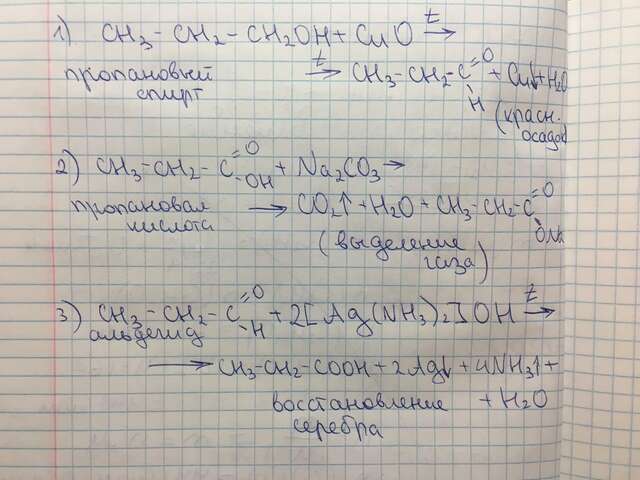 1) CH3 - CH2 - CH2OH + CuO t→
пропановый t→ CH3-CH2-C=O + Cu↓+H2O
спирт H (красн.
осадок
2) CH3-CH2-C=O + Na2CO3→
-OH
пропановая → CO2↑+H2O + CH3-CH2-C=O
кислота ONa
(выделение
газа)
3) CH3-CH2-C=O + 2[Ag(NH3)2]OH t→
альдегид H
→ CH3-CH2-COOH + 2Ag↓ + 4NH3↑+
восстановление + H2O
серебра